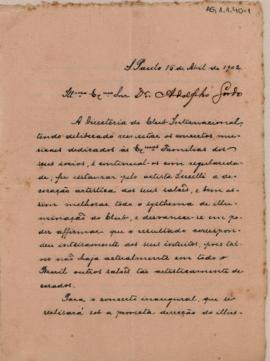 AG.1.1.40-1
S. Paulo 15 de Abril de 1902
Illmo Exmo Snr Dr. Adolpho Gordo
A Directoria do Club Internacional,
tendo deliberado reencetar os concertos mu-
sicaes dedicados ás Exmas Familias dos
seus socios, e continual-os com regularida-
de, fez restaurar pelo artista a de-
coração artistica dos seus salões, bem as-
sim melhorar todo o systhema de illu-
minação do Club, e desvanece-se em po-
der affirmar que o resultado correspon-
deu inteiramente aos seus intuitos, pois tal-
vez não haja actualmente em todo o
Brasil outros salões tão artisticamente de-
corados.
Para o concerto inaugural, que se
realisará sob a provecta direcção do illus-